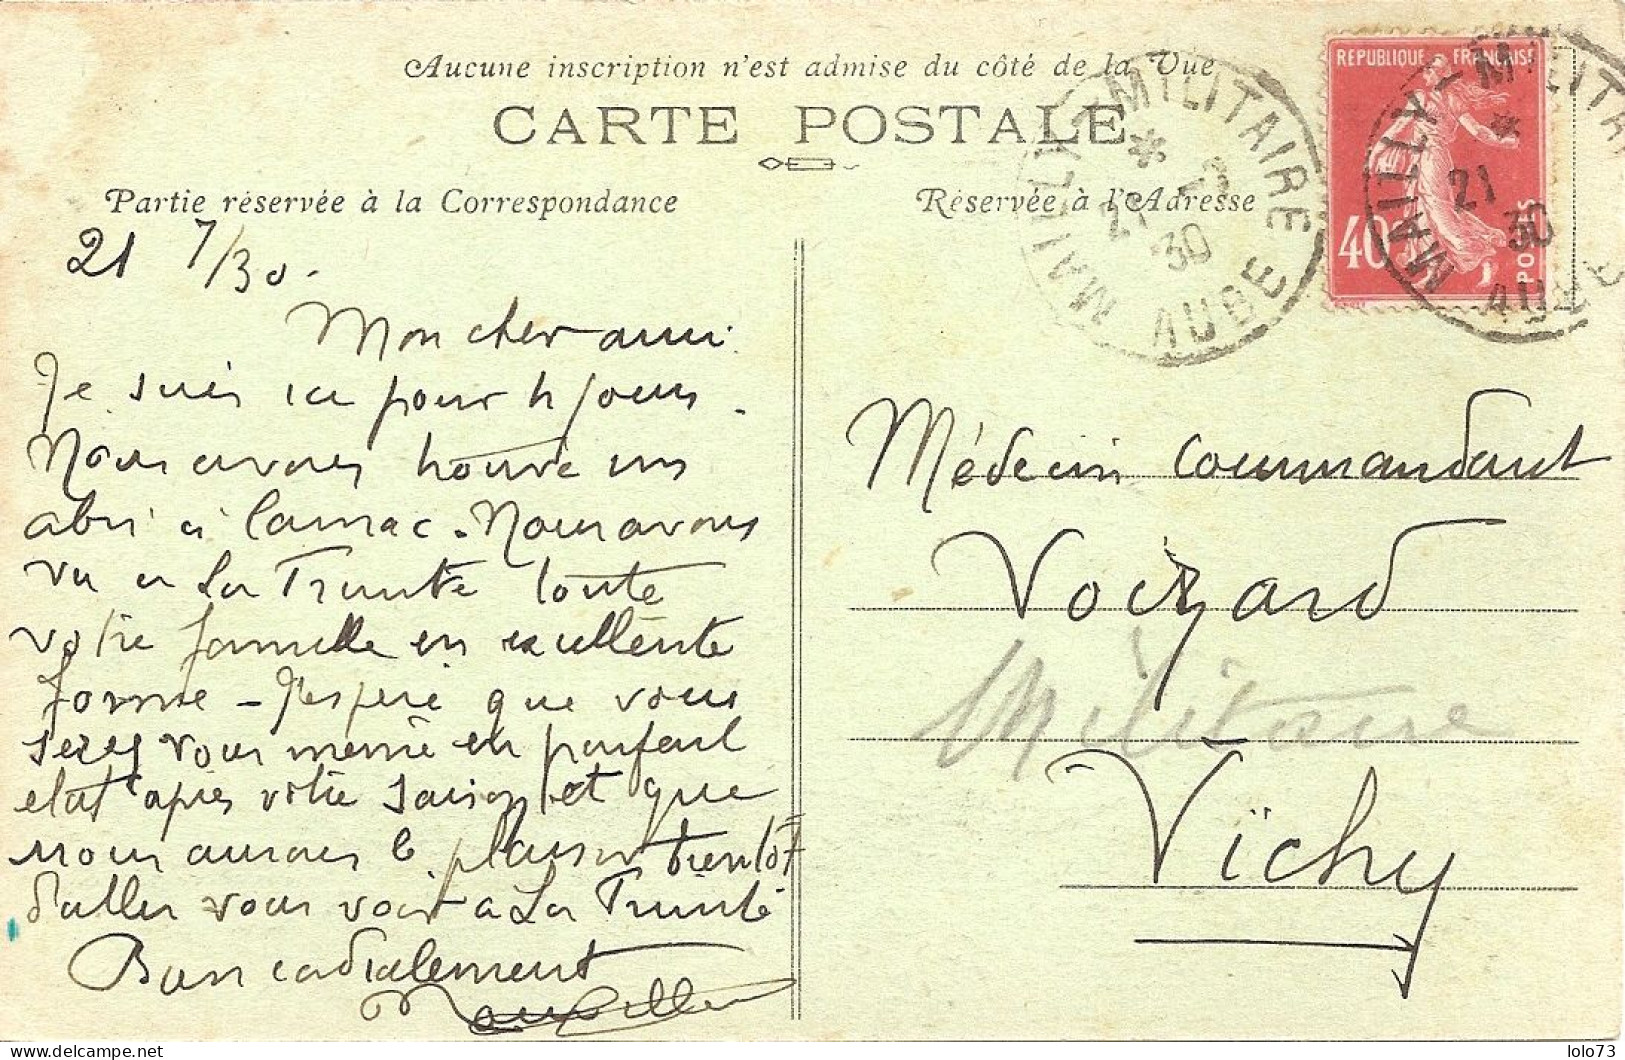 Aucune inscription n'est admise du côté de la Vue
CARTE POSTALE
Partie réservée à la Correspondance
Réservée à l'Adresse
MAILLY-MILITAIRE
* 21 -7 30
AUBE
REPUBLIQUE FRANÇAISE
40c
POSTES
MAILLY-MILITAIRE
* 21 30
AUBE
21 7/30.
Mon cher ami.
Je suis ici pour jours.
Nous avons trouvé un
abri à Carnac. Nous avons
vu à La Trinité toute
votre famille en excellente
forme - J'espère que vous
serez vous même en parfait
état après votre saison et que
nous aurons le plaisir bientôt
d'aller vous voir à La Trinité
Bien cordialement
Médecin Commandant
Voizard
Militaire
Vichy
lolo73